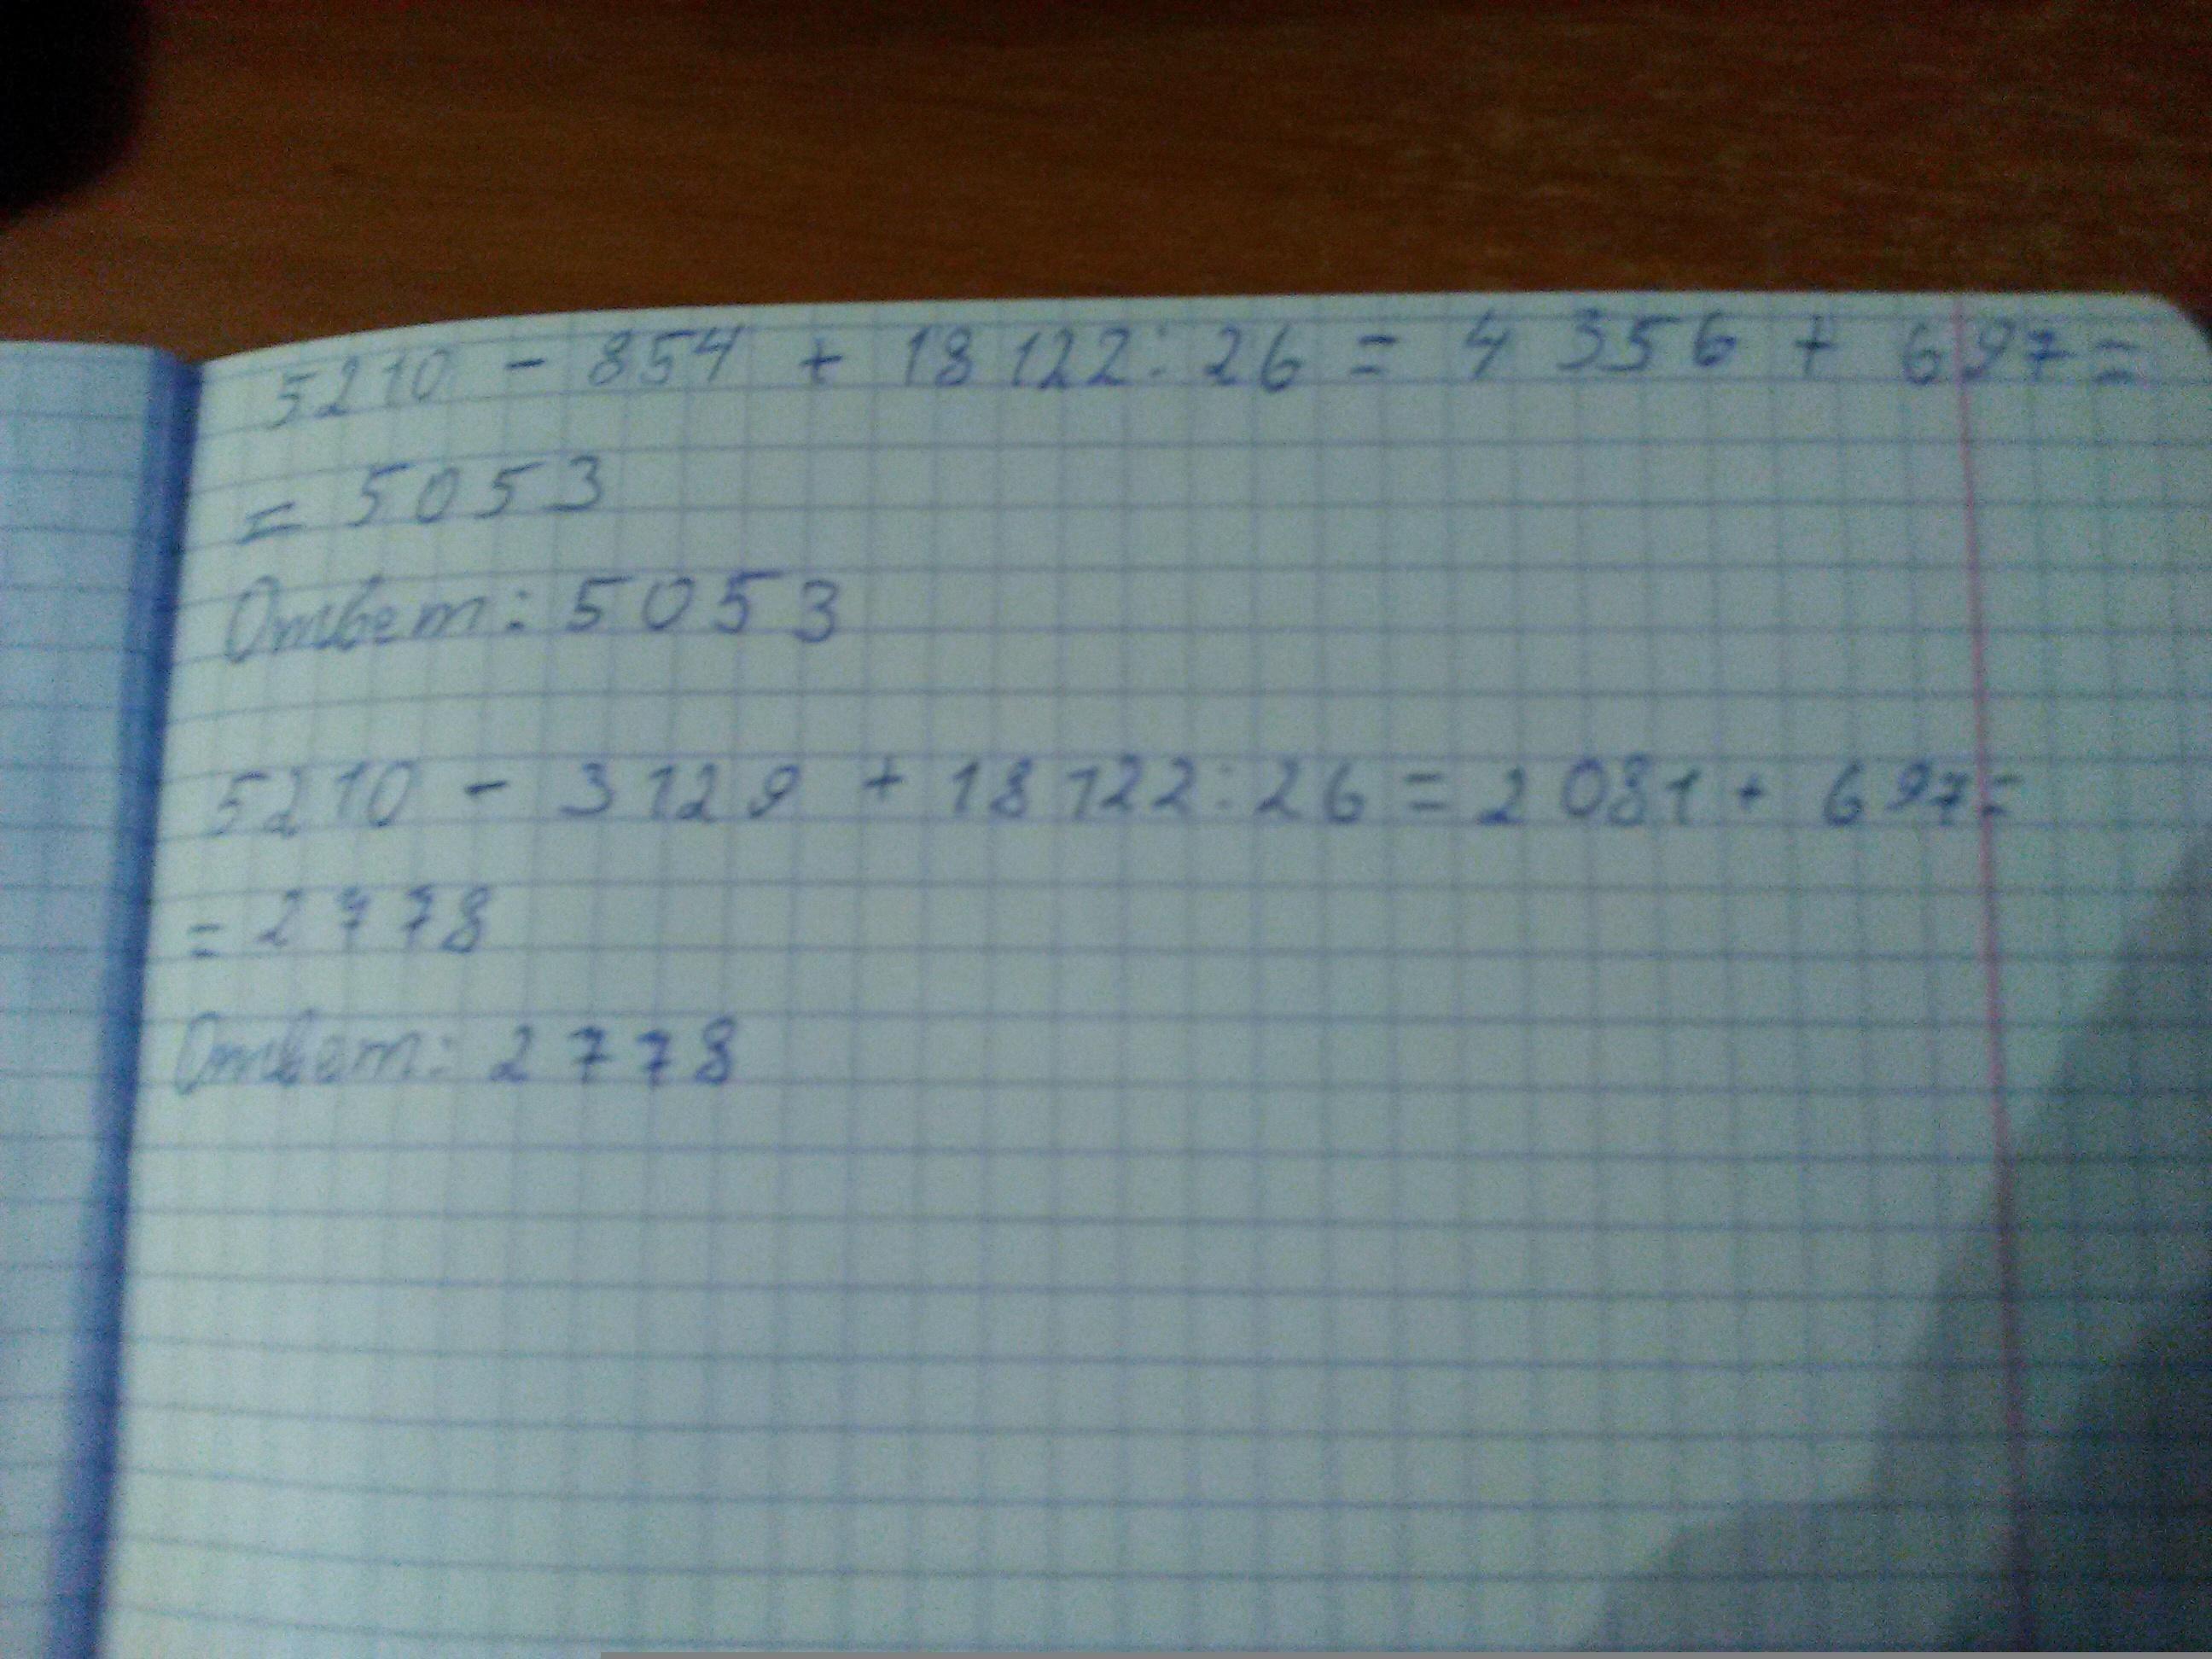 5210 - 854 + 18 122 : 26 = 4 356 + 697 =
= 5053
Ответ: 5053
5210 - 3129 + 18 122 : 26 = 2 081 + 697 =
= 2778
Ответ: 2778